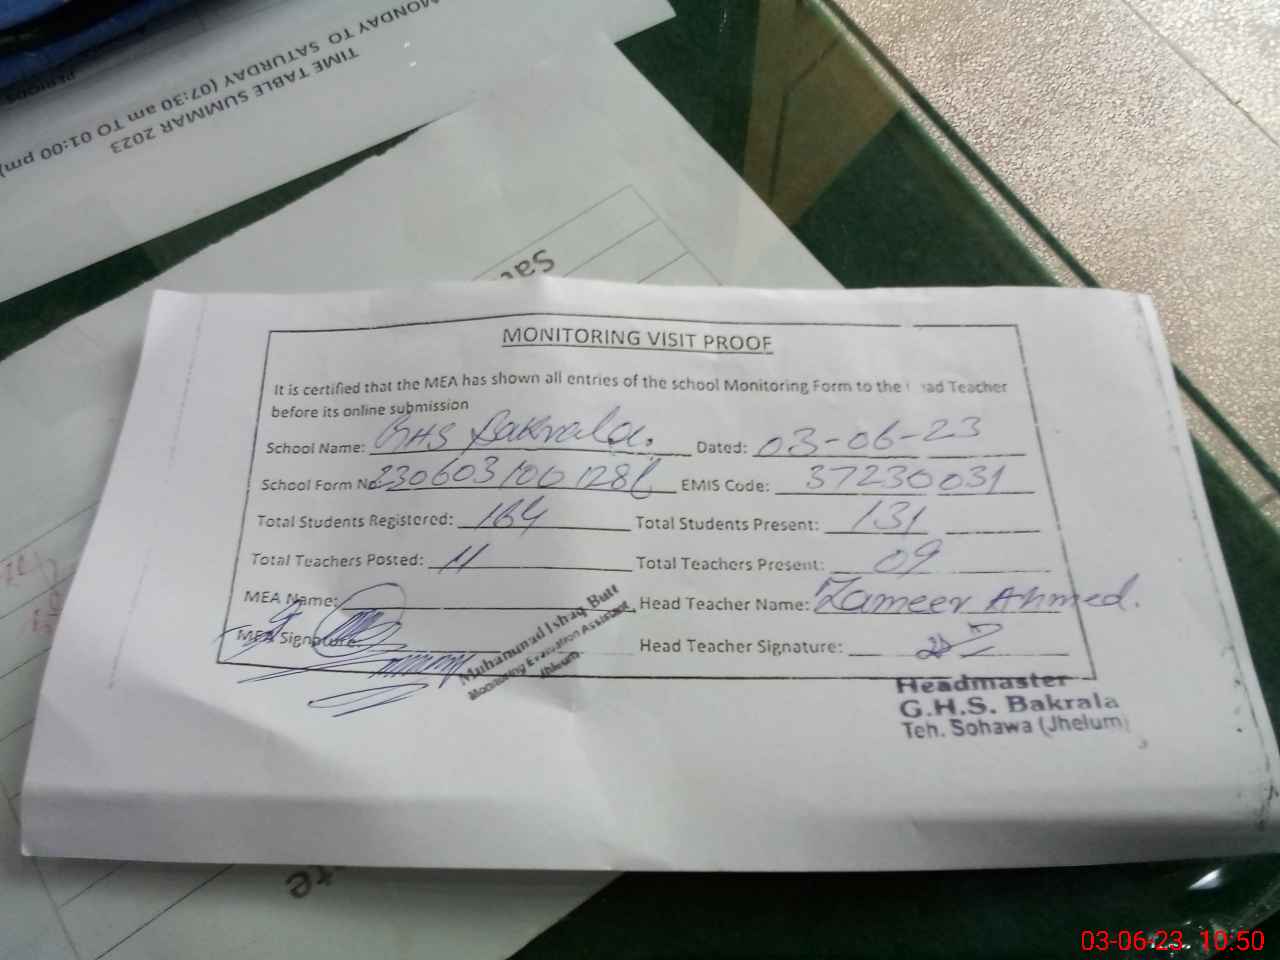 MONDAY TO SATURDAY (07:30 am TO 01:00 pm)
TIME TABLE SUMMAR 2023
MONITORING VISIT PROOF
It is certified that the MEA has shown all entries of the school Monitoring Form to the Head Teacher
before its online submission
School Name: GHS Bakrala. Dated: 03-06-23
School Form No: EMIS Code: 37230031
Total Students Registered: 164 Total Students Present: 131
Total Teachers Posted: 11 Total Teachers Present: 09
MEA Name: Head Teacher Name: Zameer Ahmed.
MEA Signature Head Teacher Signature:
Muhammad Ishaq Butt
Monitoring Evaluation Assistant
Jhelum.
Headmaster
G.H.S. Bakrala
Teh. Sohawa (Jhelum)
03-06-23 10:50